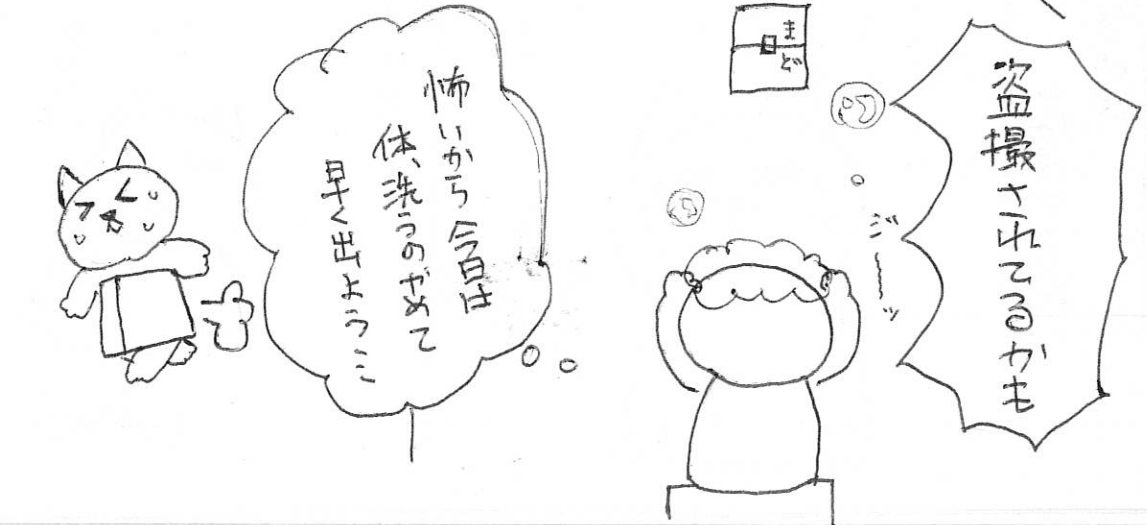 盗撮されてるかも
まど
ジーーッ
怖いから今日は
体、洗うのやめて
早く出よう…